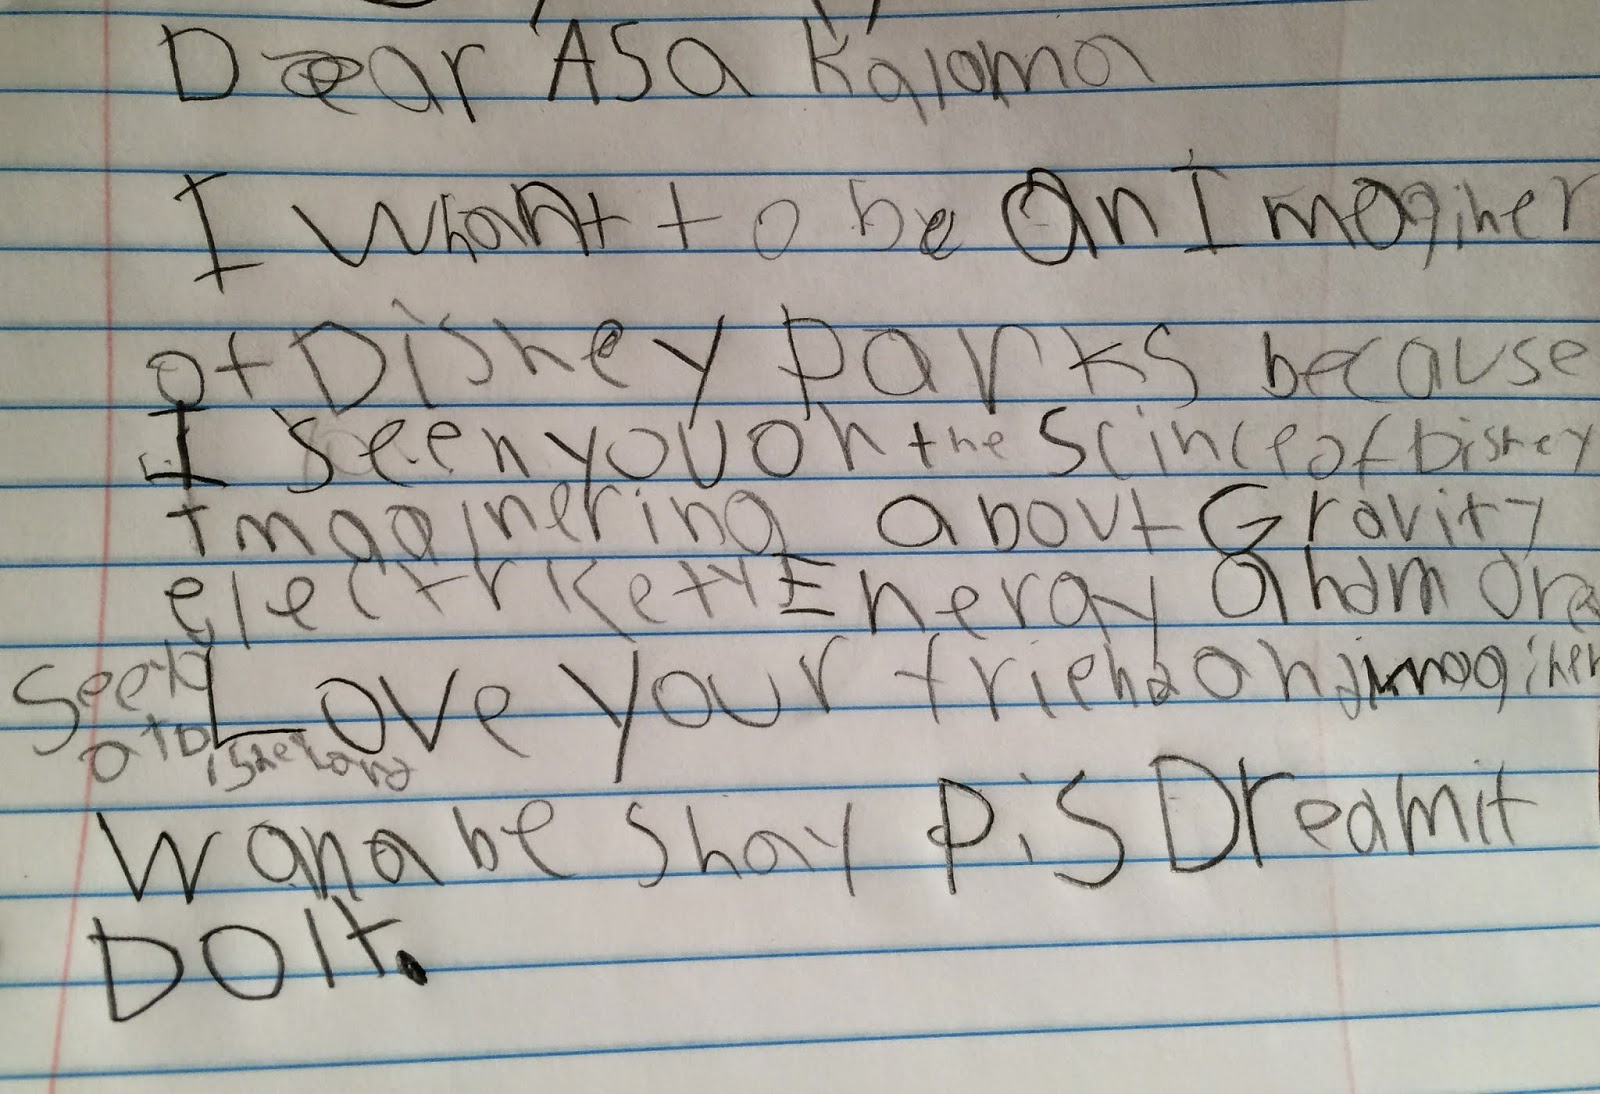 Dear Asa Kalama
I Whant to be an Imaginer
of Disney parks because
I seen you on the Scince of Disney
Imaginering about Gravity
electrikety Energy and more
Love your friend and imaginer
Seeya
at Disneyland
Wanabe Shay P.S Dream it
Do It.